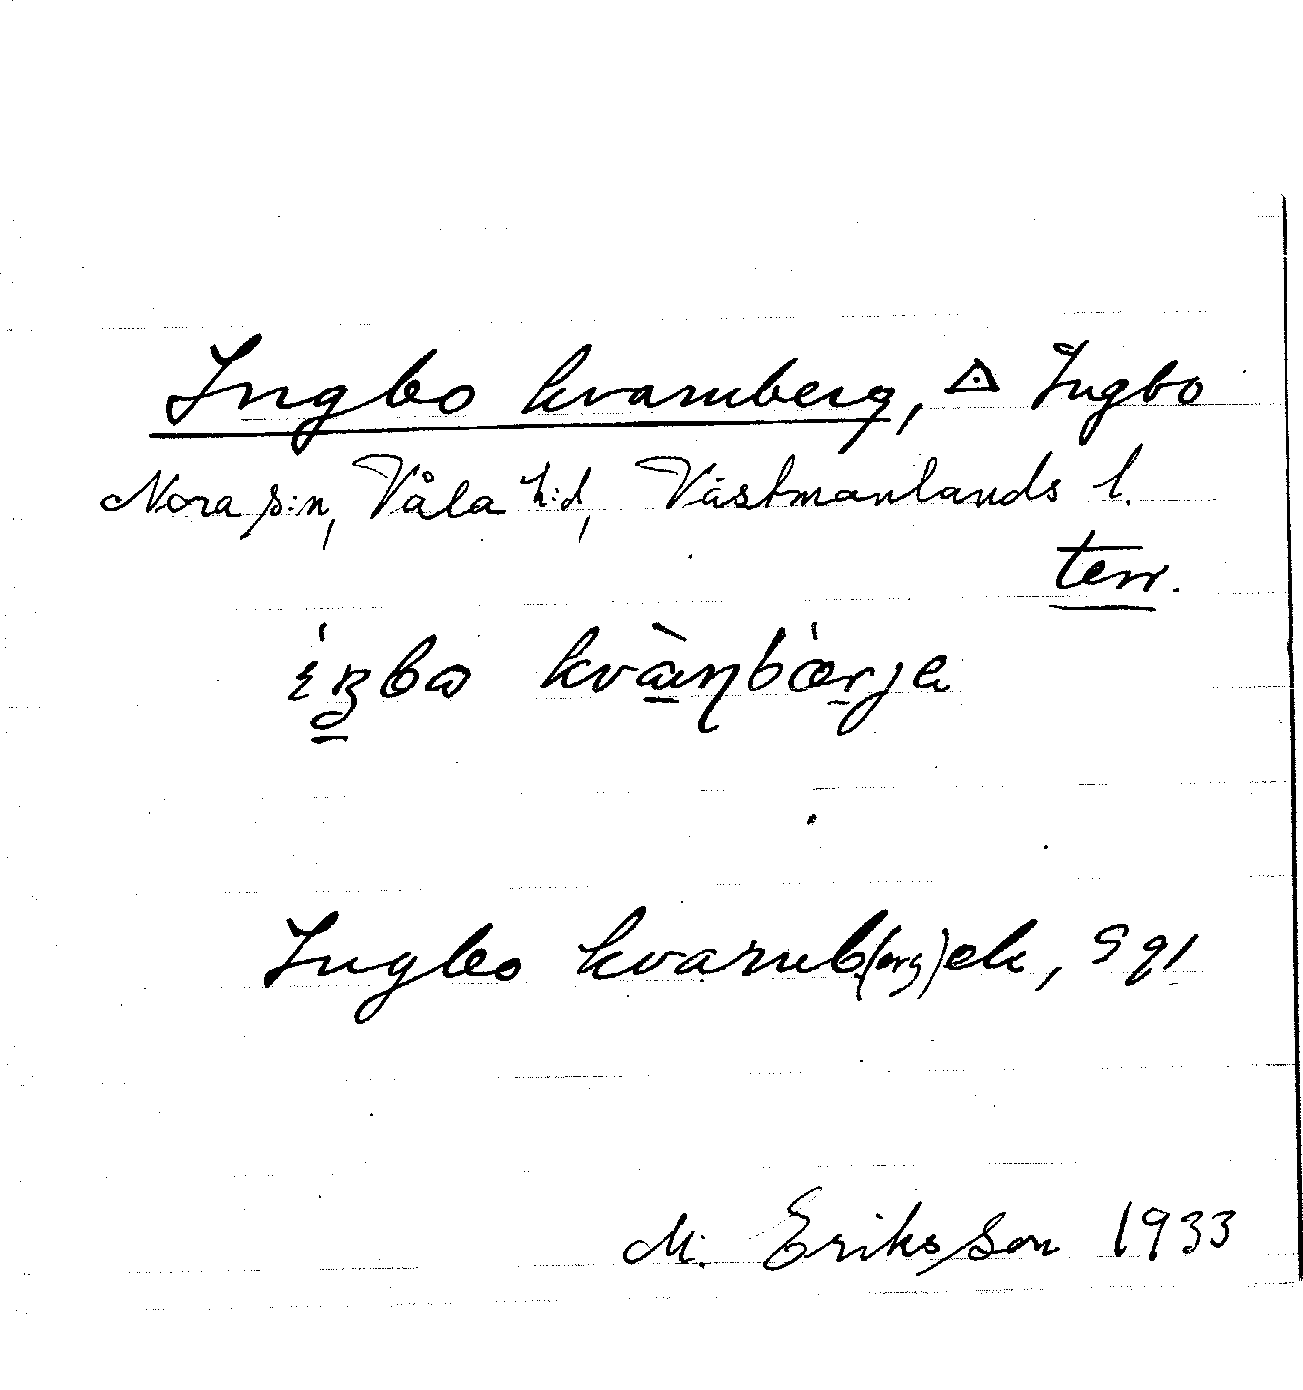 Ingbo kvarnberg, △ Ingbo
Nora s:n, Våla h:d, Västmanlands l.
terr.
kvàɳbæ̀rjɐ
Ingbo kvarnb(erg)ek, S 91
M. Eriksson 1933